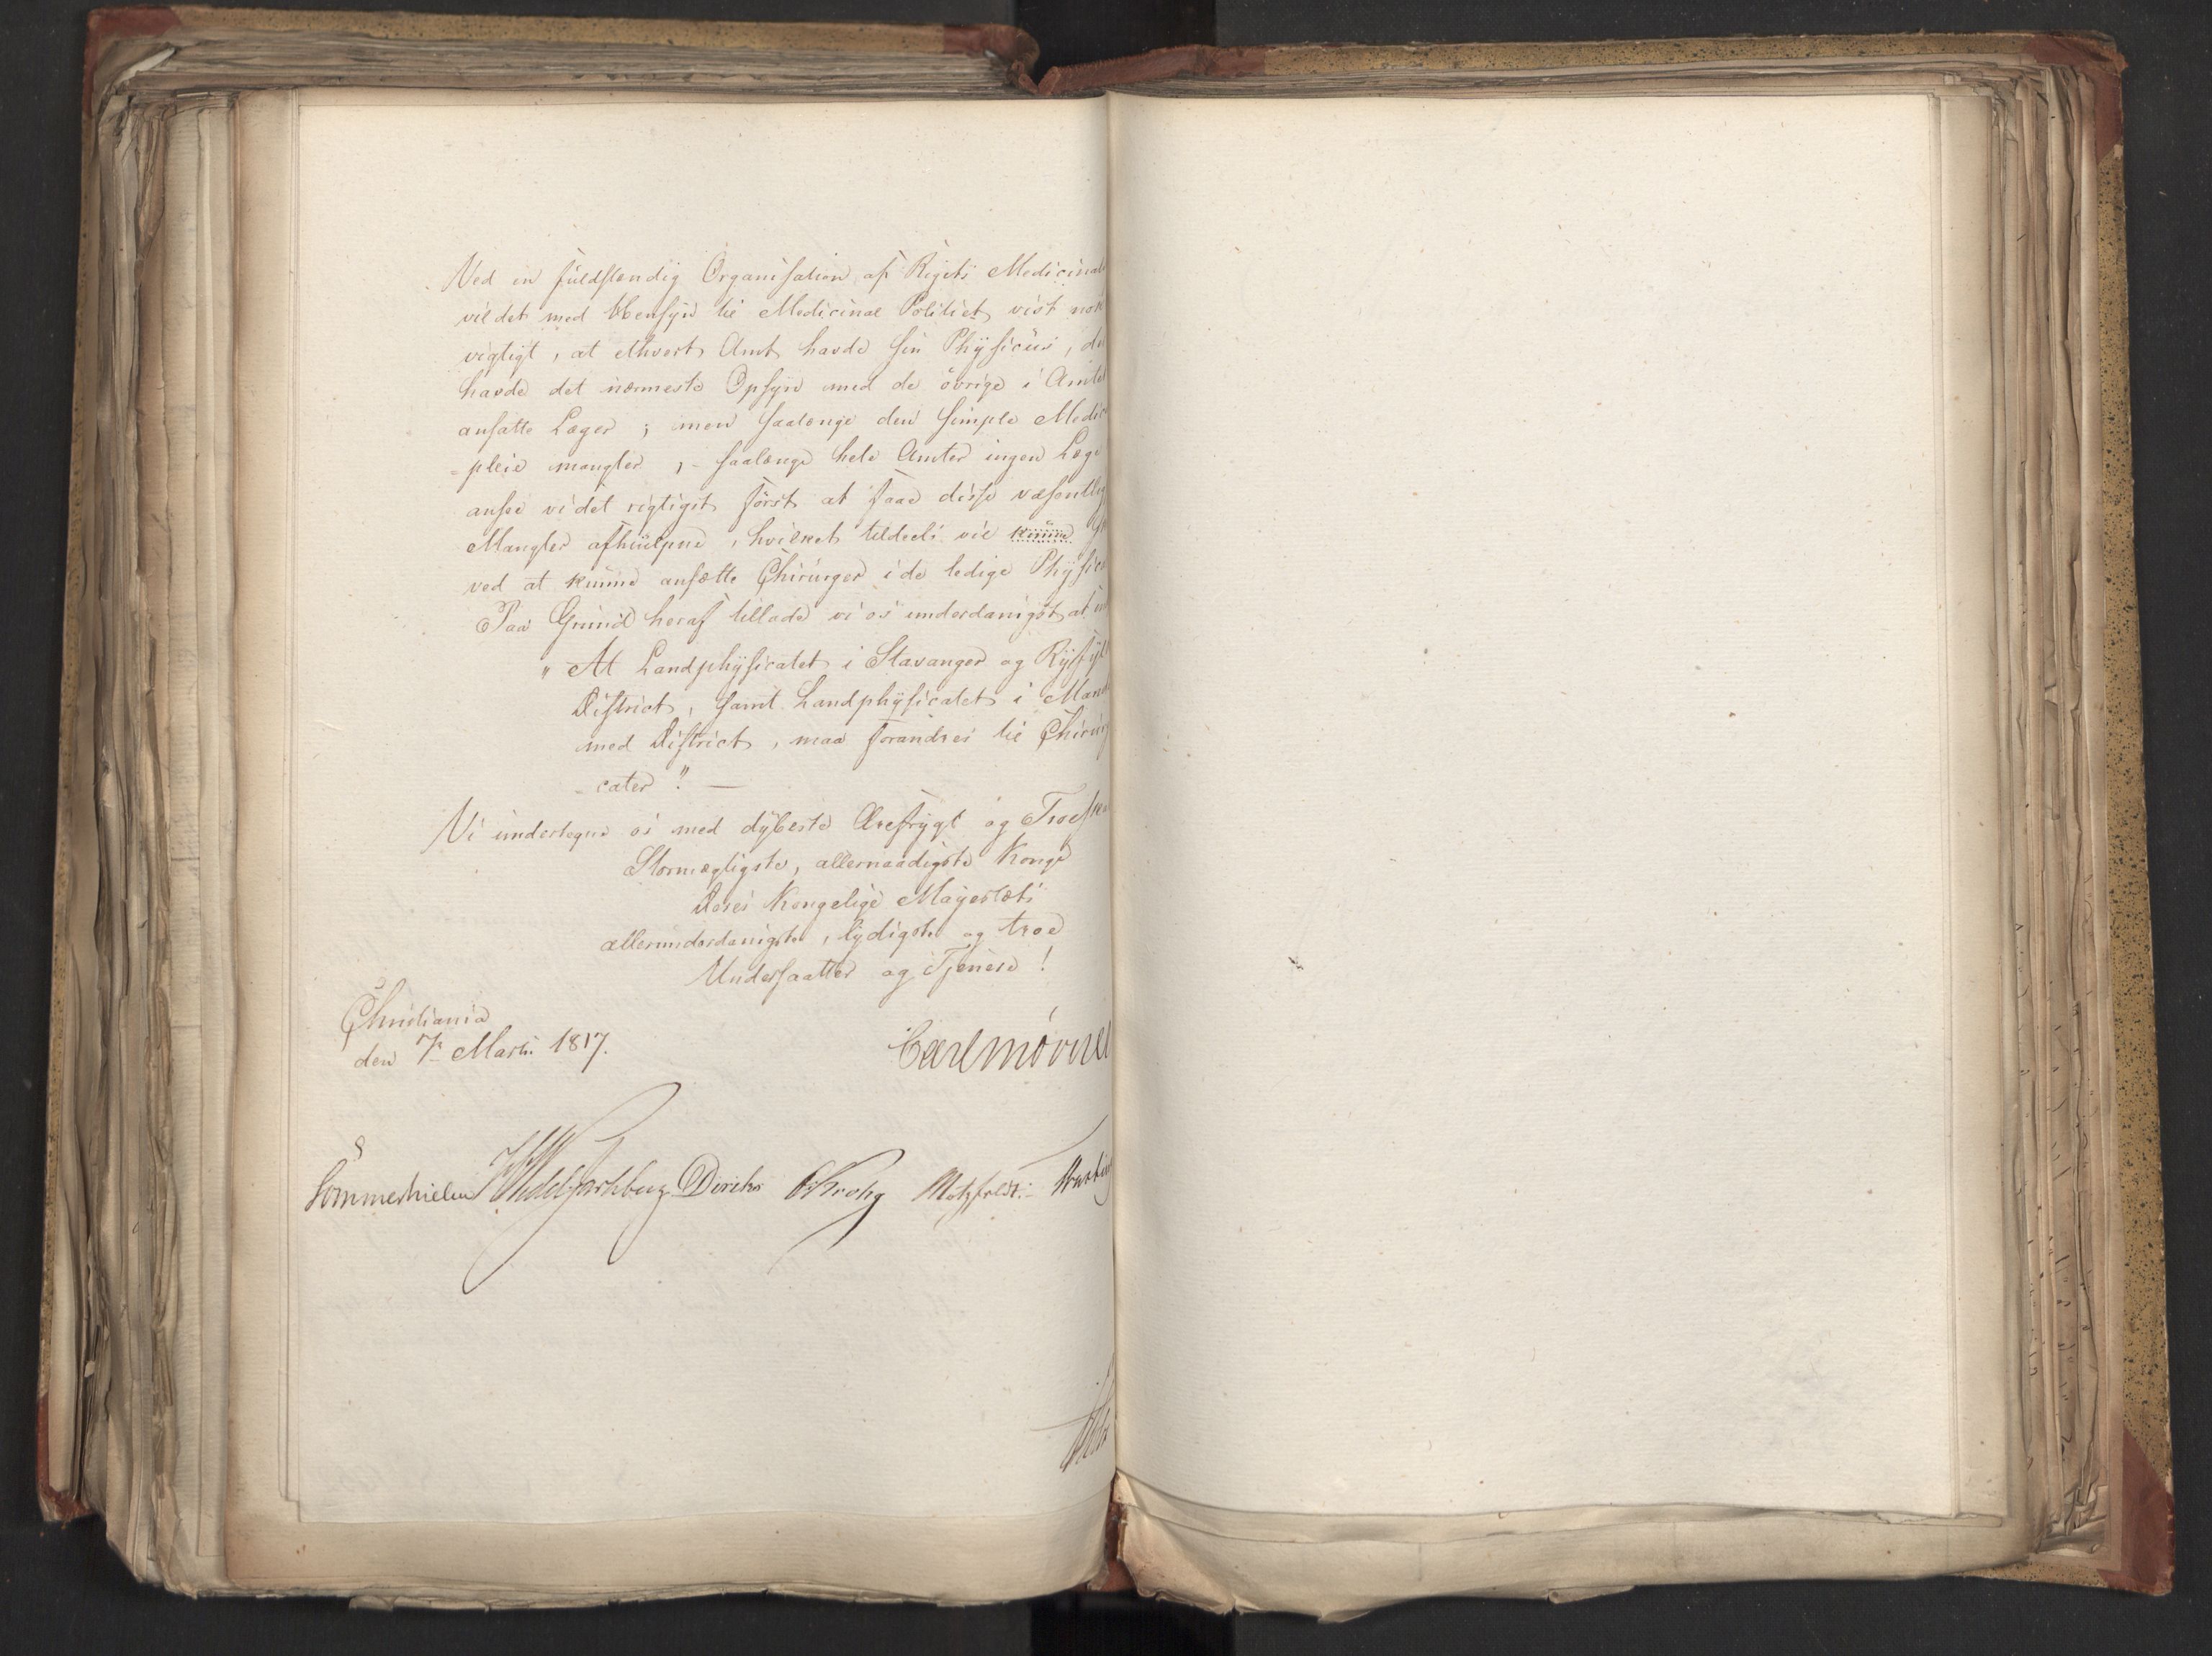 Ved en fuldstændig Organisation af Rigets Medicinal
vil det med Hensyn til Medicinal Politiet vist nok
vigtigt, at ethvert Amt havde sin Physicus, de
havde det nærmeste Opsyn med de övrige i Amtet
ansatte Læger; men saalænge den simple Medic
-pleie mangler, - saalænge hele Amter ingen Læge
ansee vi det rigtigst först at faae disse væsentlig
Mangler afhiulpne, hvilket tildeels vil kunne
ved at kunne ansætte Chirurger i de ledige Physica
Paa Grund heraf tillade vi os underdanigst at in
" At Landphysicatet i Stavanger og Ryfylk
District, samt Landphysicatet i Mand
med District, maa forandres til Chirurg
- cater". —
Vi undertegne os med dybeste Ærefrygt og Troeska
Stormægtigste, allernaadigste Konge
Deres Kongelige Mayestæts
allerunderdanigste, lydigste og troe
Undersaatter og Tjenere!
Christiania
den 7de Marts 1817.
Carl Mörner
Sommerhielm Hegermann Diriks CKrohg Motzfeldt